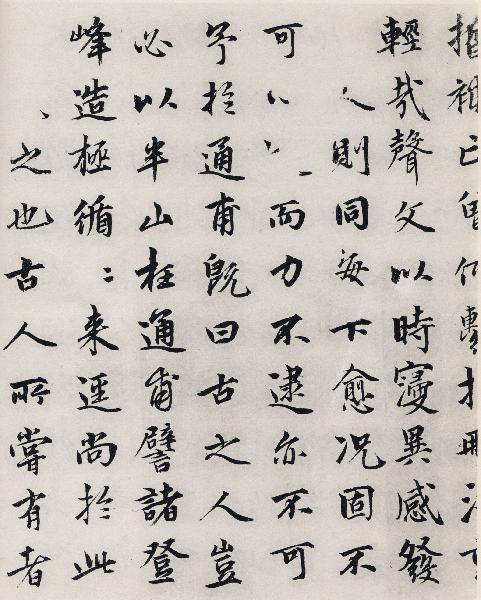 祖已曾
輕哉聲文以時寖異感發
人則同每下愈況固不
可而力不逮亦不可
予於通甫既曰古之人豈
必以半山枉通甫譬諸登
峰造極循〻来逕尚於此
之也古人所嘗有者